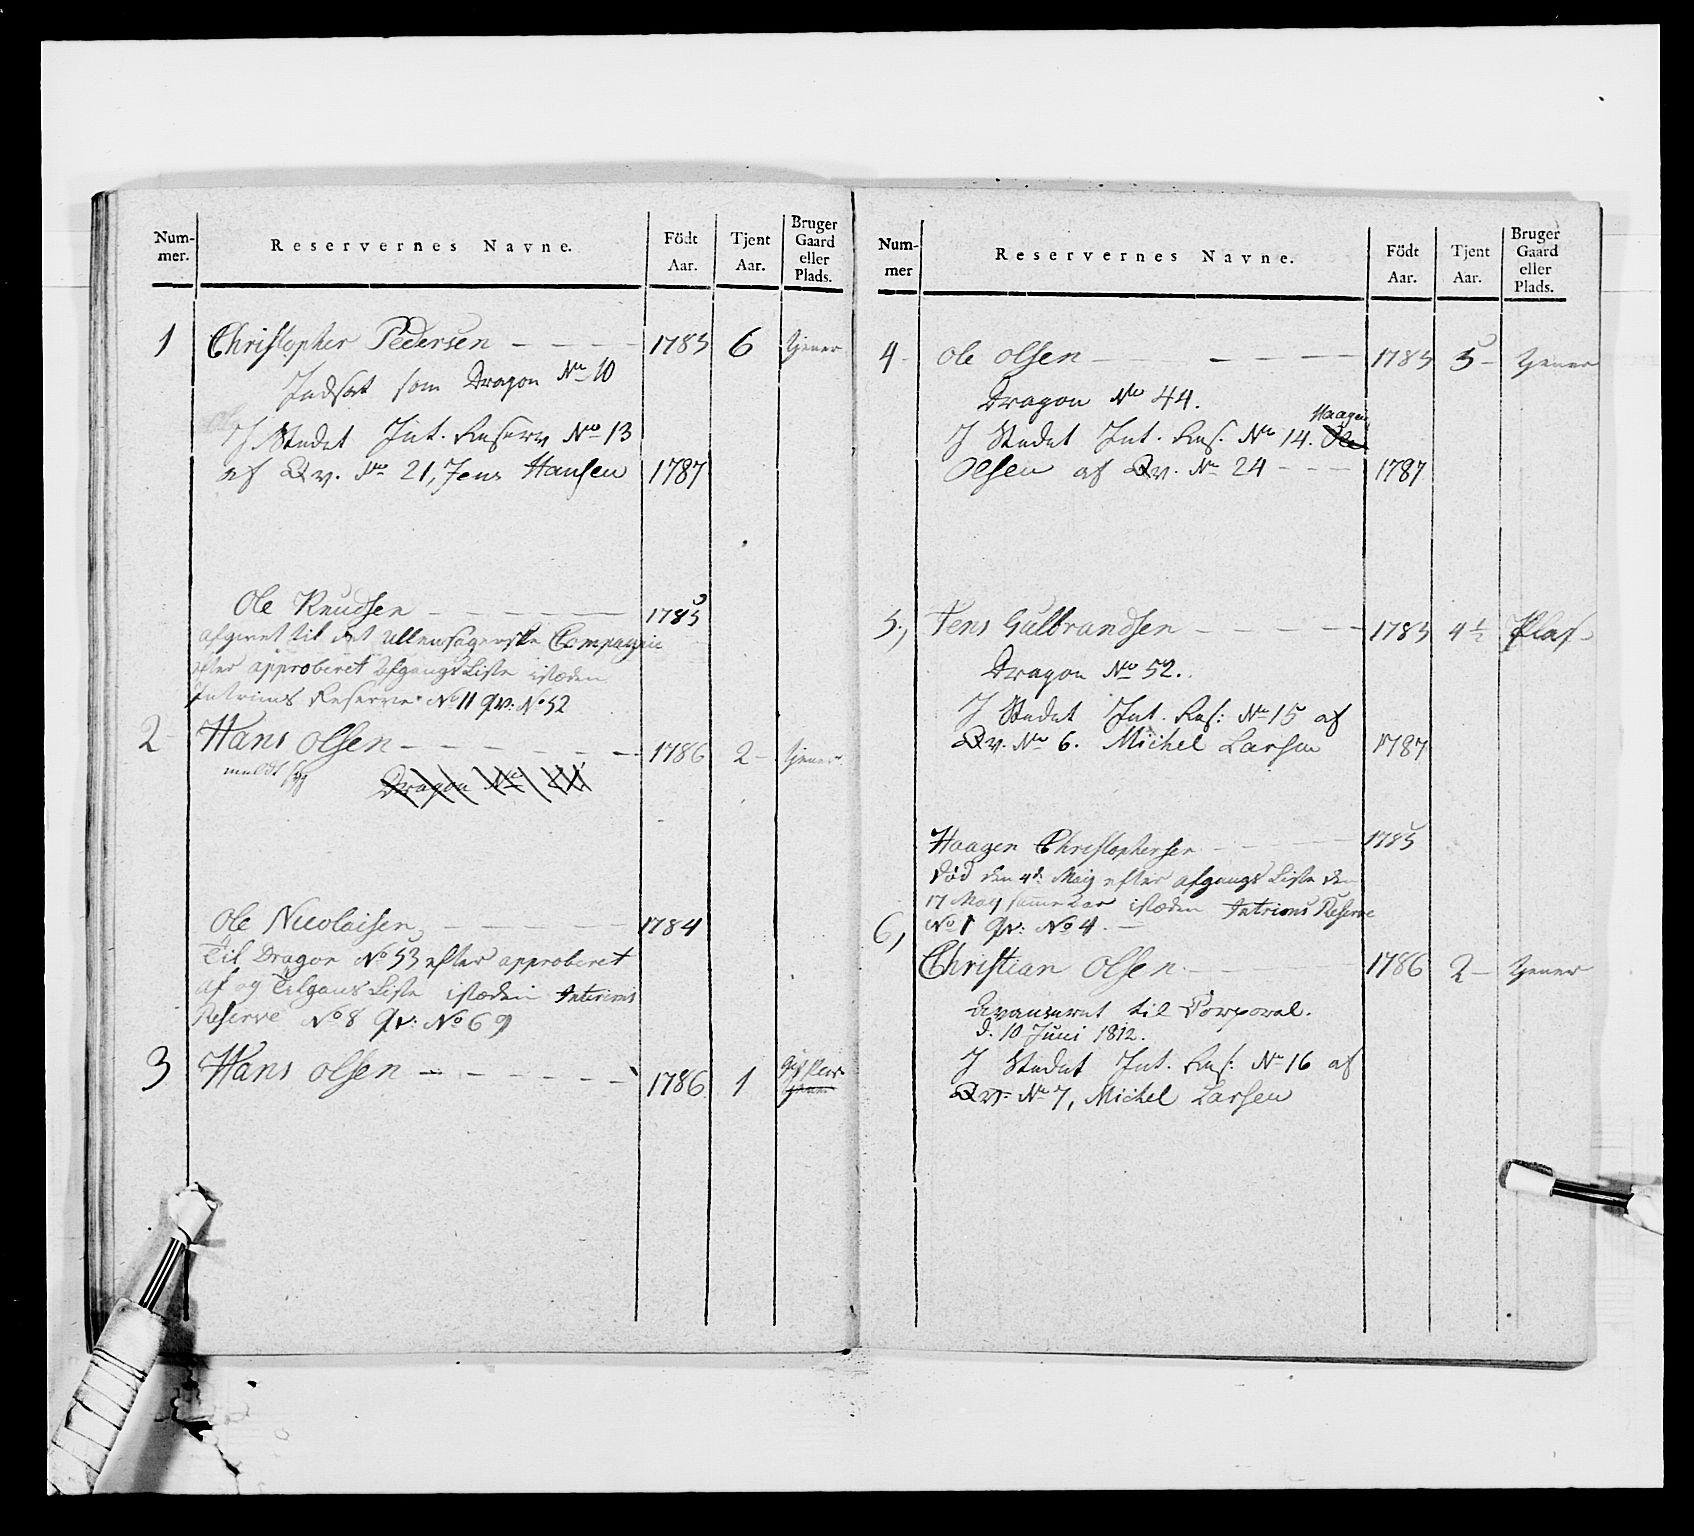 Num-
mer.
Reservernes Navne.
Födt
Aar.
Tjent
Aar.
Bruger
Gaard
eller
Plads.
1 Christopher Pedersen 1785 6 tjener
Indsat som Dragon No 10
I Stedet Int. Reserv No 13
af Qv. No 21, Jens Hansen 1787
Ole Knudsen 1785
afgivet til det Ullensagerske Compagnie
efter approberet Afgangs Liste isteden
Intrims Reserve No 11 qv: No 52
2 Hans Olsen 1786 2 tjener
meldt syg Dragon No
Ole Nicolaisen 1784
Til Dragon No 53 efter approberet
af og Tilgans Liste isteden Interims
Reserve No 8 Qv: No 69
3 Hans Olsen 1786 1
tjener
Num-
mer
Reservernes Navne.
Födt
Aar.
Tjent
Aar.
Bruger
Gaard
eller
Plads.
4 Ole Olsen 1785 5 tjener
Dragon No 44.
Haagen
I Stedet Int. Res. No 14. Ole
Olsen af Qv. No 24 1787
5, Jens Gulbrandsen 1785 4½ Plas
Dragon No 52.
I Stedet Int. Res: No 15 af
Qv. No 6. Michel Larsen 1787
Haagen Christophersen 1785
død den 4de Maij efter afgangs Liste den
17 May samme Aar isteden Intrims Reserve
No 1 qv: No 4.
6, Christian Olsen 1786 2 tjener
Avanseret til Corporal.
d. 10 Juni 1812.
I Stedet Int. Res: No 16 af
Qv: No 7, Michel Larsen